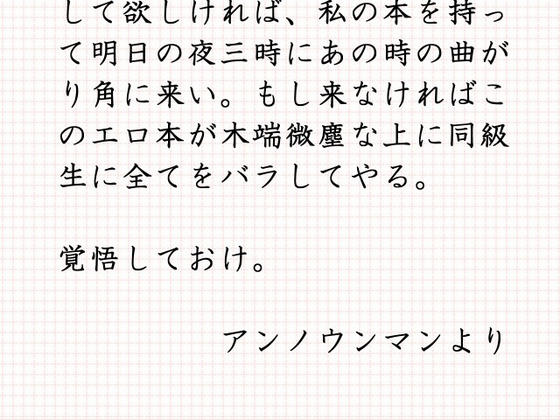 して欲しければ、私の本を持っ
て明日の夜三時にあの時の曲が
り角に来い。もし来なければこ
のエロ本が木端微塵な上に同級
生に全てをバラしてやる。
覚悟しておけ。
アンノウンマンより